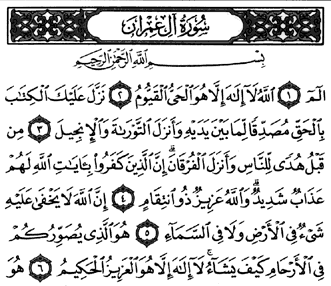 سُورَةُ آلِ عِمْرَانَ
بِسْمِ اللَّهِ الرَّحْمَٰنِ الرَّحِيمِ
الٓمٓ ١ اللَّهُ لَآ إِلَٰهَ إِلَّا هُوَ الْحَىُّ الْقَيُّومُ ٢ نَزَّلَ عَلَيْكَ الْكِتَٰبَ
بِالْحَقِّ مُصَدِّقًا لِّمَا بَيْنَ يَدَيْهِ وَأَنزَلَ التَّوْرَىٰةَ وَالْإِنجِيلَ ٣ مِن
قَبْلُ هُدًى لِّلنَّاسِ وَأَنزَلَ الْفُرْقَانَ إِنَّ الَّذِينَ كَفَرُوا بِـَٔايَٰتِ اللَّهِ لَهُمْ
عَذَابٌ شَدِيدٌ وَاللَّهُ عَزِيزٌ ذُو انتِقَامٍ ٤ إِنَّ اللَّهَ لَا يَخْفَىٰ عَلَيْهِ
شَىْءٌ فِى الْأَرْضِ وَلَا فِى السَّمَآءِ ٥ هُوَ الَّذِى يُصَوِّرُكُمْ
فِى الْأَرْحَامِ كَيْفَ يَشَآءُ لَآ إِلَٰهَ إِلَّا هُوَ الْعَزِيزُ الْحَكِيمُ ٦ هُوَ